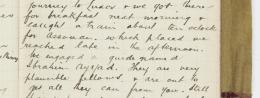 journey to Luxor & we got there
for breakfast next morning &
caught a train about ten o'clock
for Assouan, which placed we
reached late in the afternoon.
We engaged a guide named
Ibrahim They are very
plausible fellows, & are out to
get all they can from you. Still